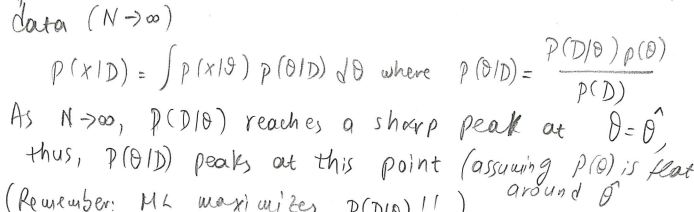 data (N→∞)
p(x|D) = ∫p(x|ϑ) p(θ|D) dθ where p(θ|D) = P(D|θ)p(θ) / P(D)
As N→∞, P(D|θ) reaches a sharp peak at θ=θ̂,
thus, P(θ|D) peaks at this point (assuming P(θ) is flat
around θ̂
(Remember: ML maximizes P(D|θ)!!)